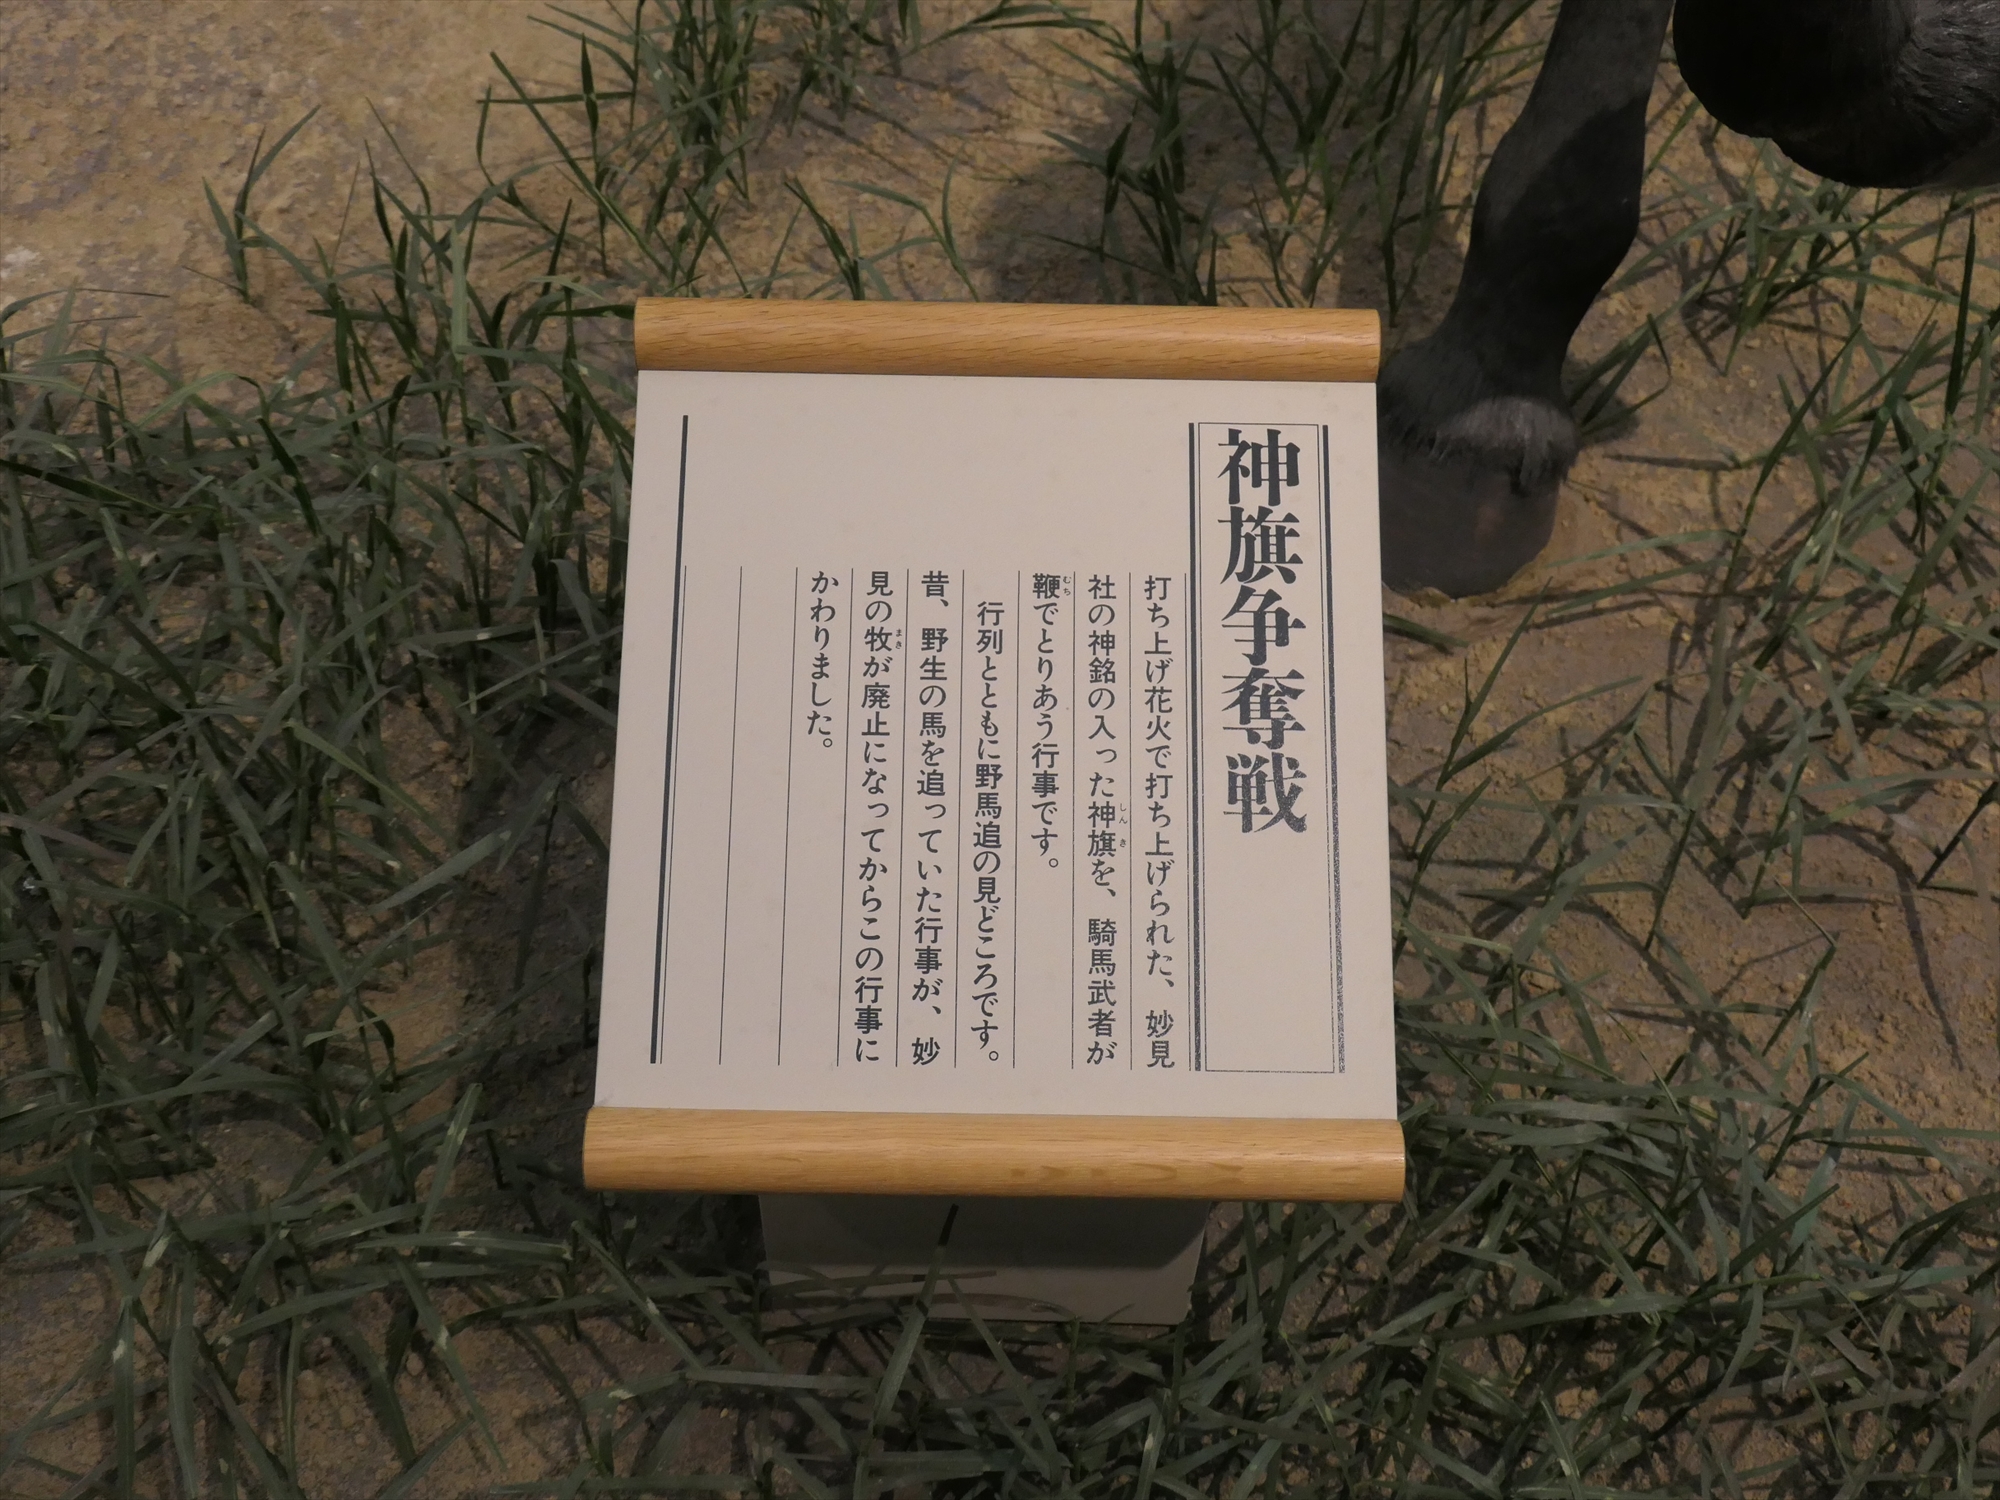 神旗争奪戦
打ち上げ花火で打ち上げられた、妙見
社の神銘の入った神旗を、騎馬武者が
しんき
鞭でとりあう行事です。
むち
行列とともに野馬追の見どころです。
昔、野生の馬を追っていた行事が、妙
見の牧が廃止になってからこの行事に
まき
かわりました。